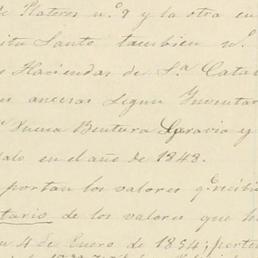 de Plateros n.º 9 y la otra en
ritu Santo tambien n.º
s Haciendas de S.ta Cata
en ancsras segun Ynventar
a Buena Bentura Garacio y
ado en el año de 1843.
portan los valores q.e recibi
tario de los valores que le
n 4 de Enero de 1854; porte